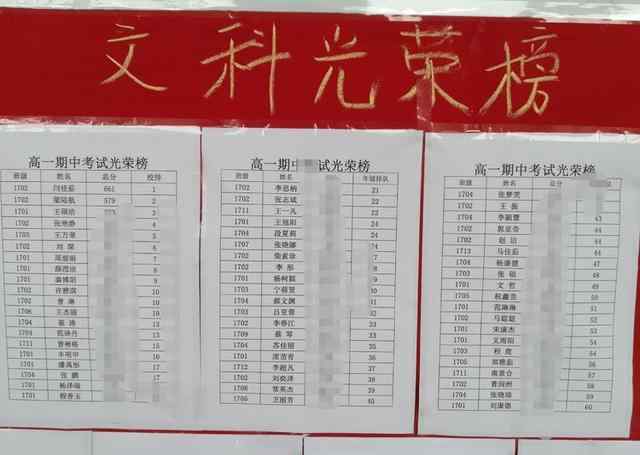 文科光荣榜
高一期中考试光荣榜
班级 姓名 总分 校排
1702 闫佳茹 661 1
1702 梁陆航 579 2
1701 王硕浩 3
1702 张艳静 4
1705 王万豪 5
1702 刘琛 6
1701 7
1701 薛霞琼 8
1701 翁博阳 9
1702 许雅淇 10
1702 曹琳 10
1706 王杰丽 12
1704 张涛 13
1703 范诗丹 13
1711 曾彬格 15
1701 丰明申 16
1701 潘禹彤 17
1704 张鹏 17
1701 杨泽瑞
1701 程香玉
高一期中考试光荣榜
班级 姓名 年级排队
1702 李思炳 21
1702 张志斌 22
1711 王一凡 22
1701 王冠阳 24
1704 段夏莉 24
1707 张晓娜
1702 柴素珍
1702 李彤
1701 杨柯颖
1703 宁萌昱
1704 郝文渊
1703 吕昱蓉 32
1702 李蓉江 33
1709 蔡琴 33
1704 苏佳丽 35
1701 席苗青 36
1712 李超凡 37
1702 刘奕泽 38
1706 常英杰 39
1705 卫丽芳 40
高一期中考试光荣榜
班级 姓名 总分
1704 张梦笑
1702 王振
1704 李颖慧 43
1702 郭亚蓉 44
1702 赵洁 44
1713 马佳茹 44
1704 杨康健 47
1703 张硕 48
1701 文哲 49
1705 祝鑫蕾 50
1701 范琳琳 51
1702 马聪聪 52
1701 宋康杰 53
1701 文雨阳 54
1703 程虎 54
1705 郑雅茹 56
1711 南景合 57
1702 曹润洲 58
1704 张晓瑶 59
1701 刘康德 60